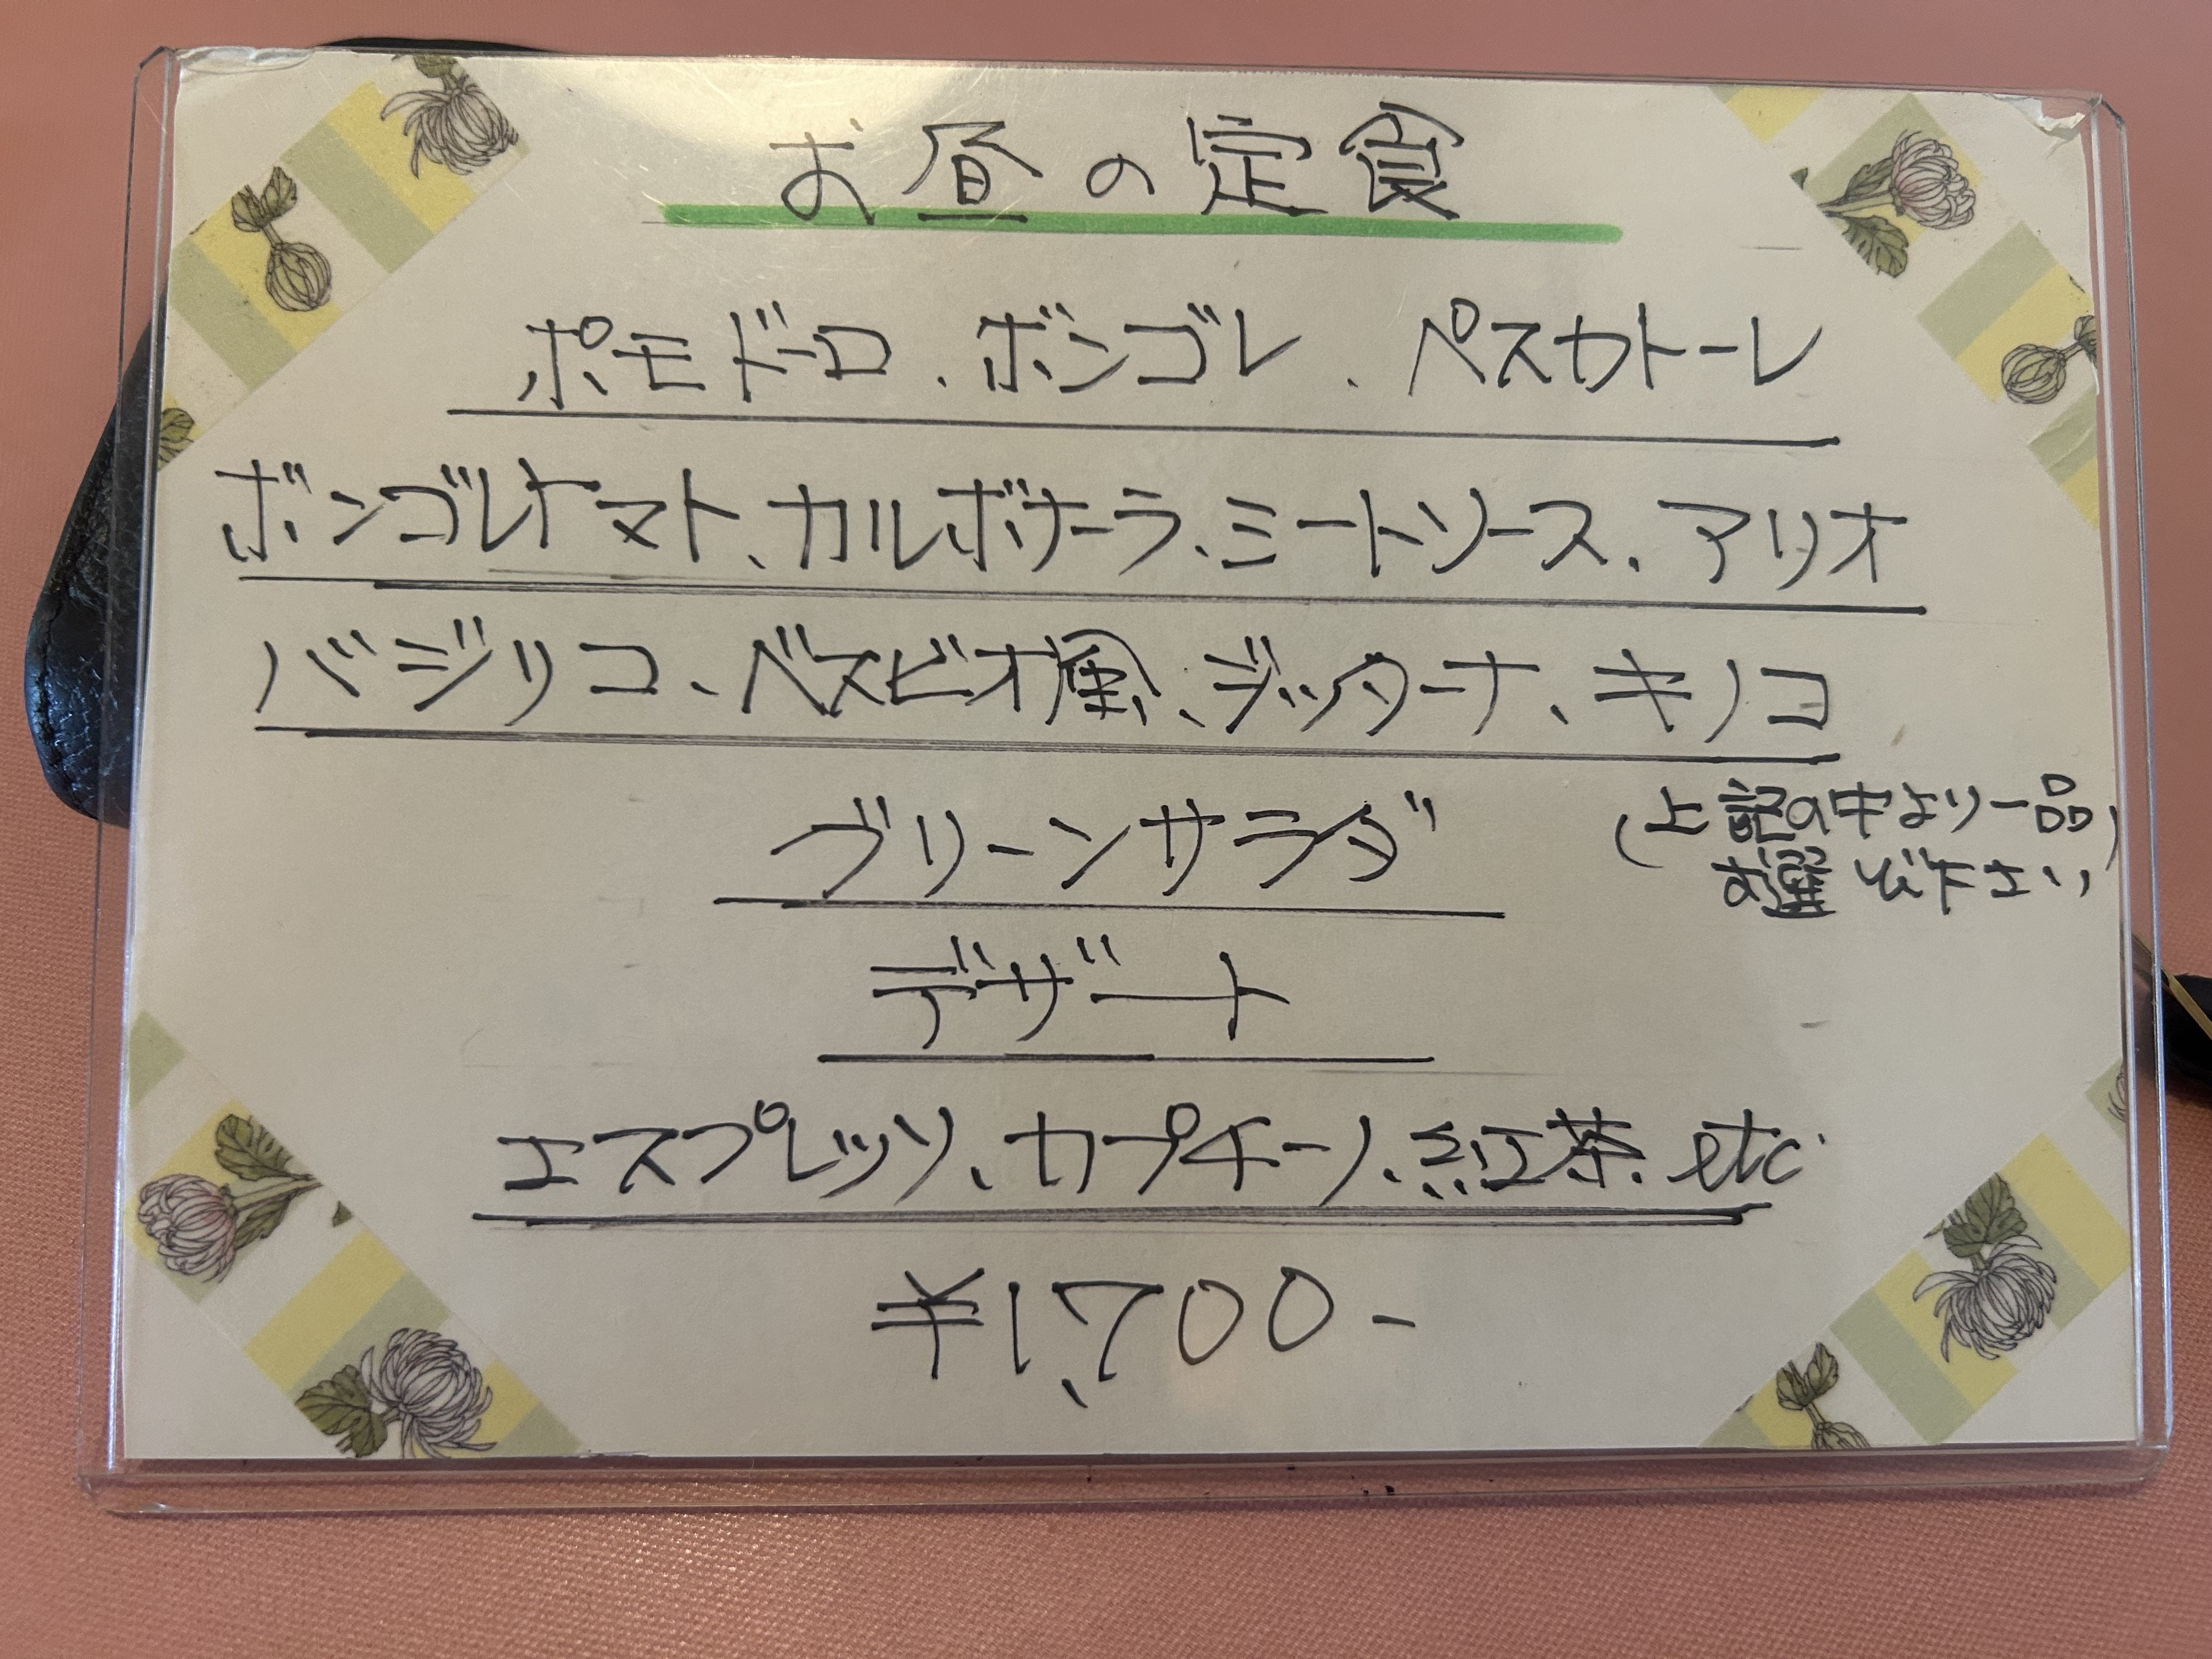 お昼の定食
ポモドーロ、ボンゴレ、ペスカトーレ
ボンゴレトマト、カルボナーラ、ミートソース、アリオ
バジリコ、ベスビオ風、ジッターナ、キノコ
(上記の中より一品
お選び下さい)
グリーンサラダ
デザート
エスプレッソ、カプチーノ、紅茶、etc
¥1,700-